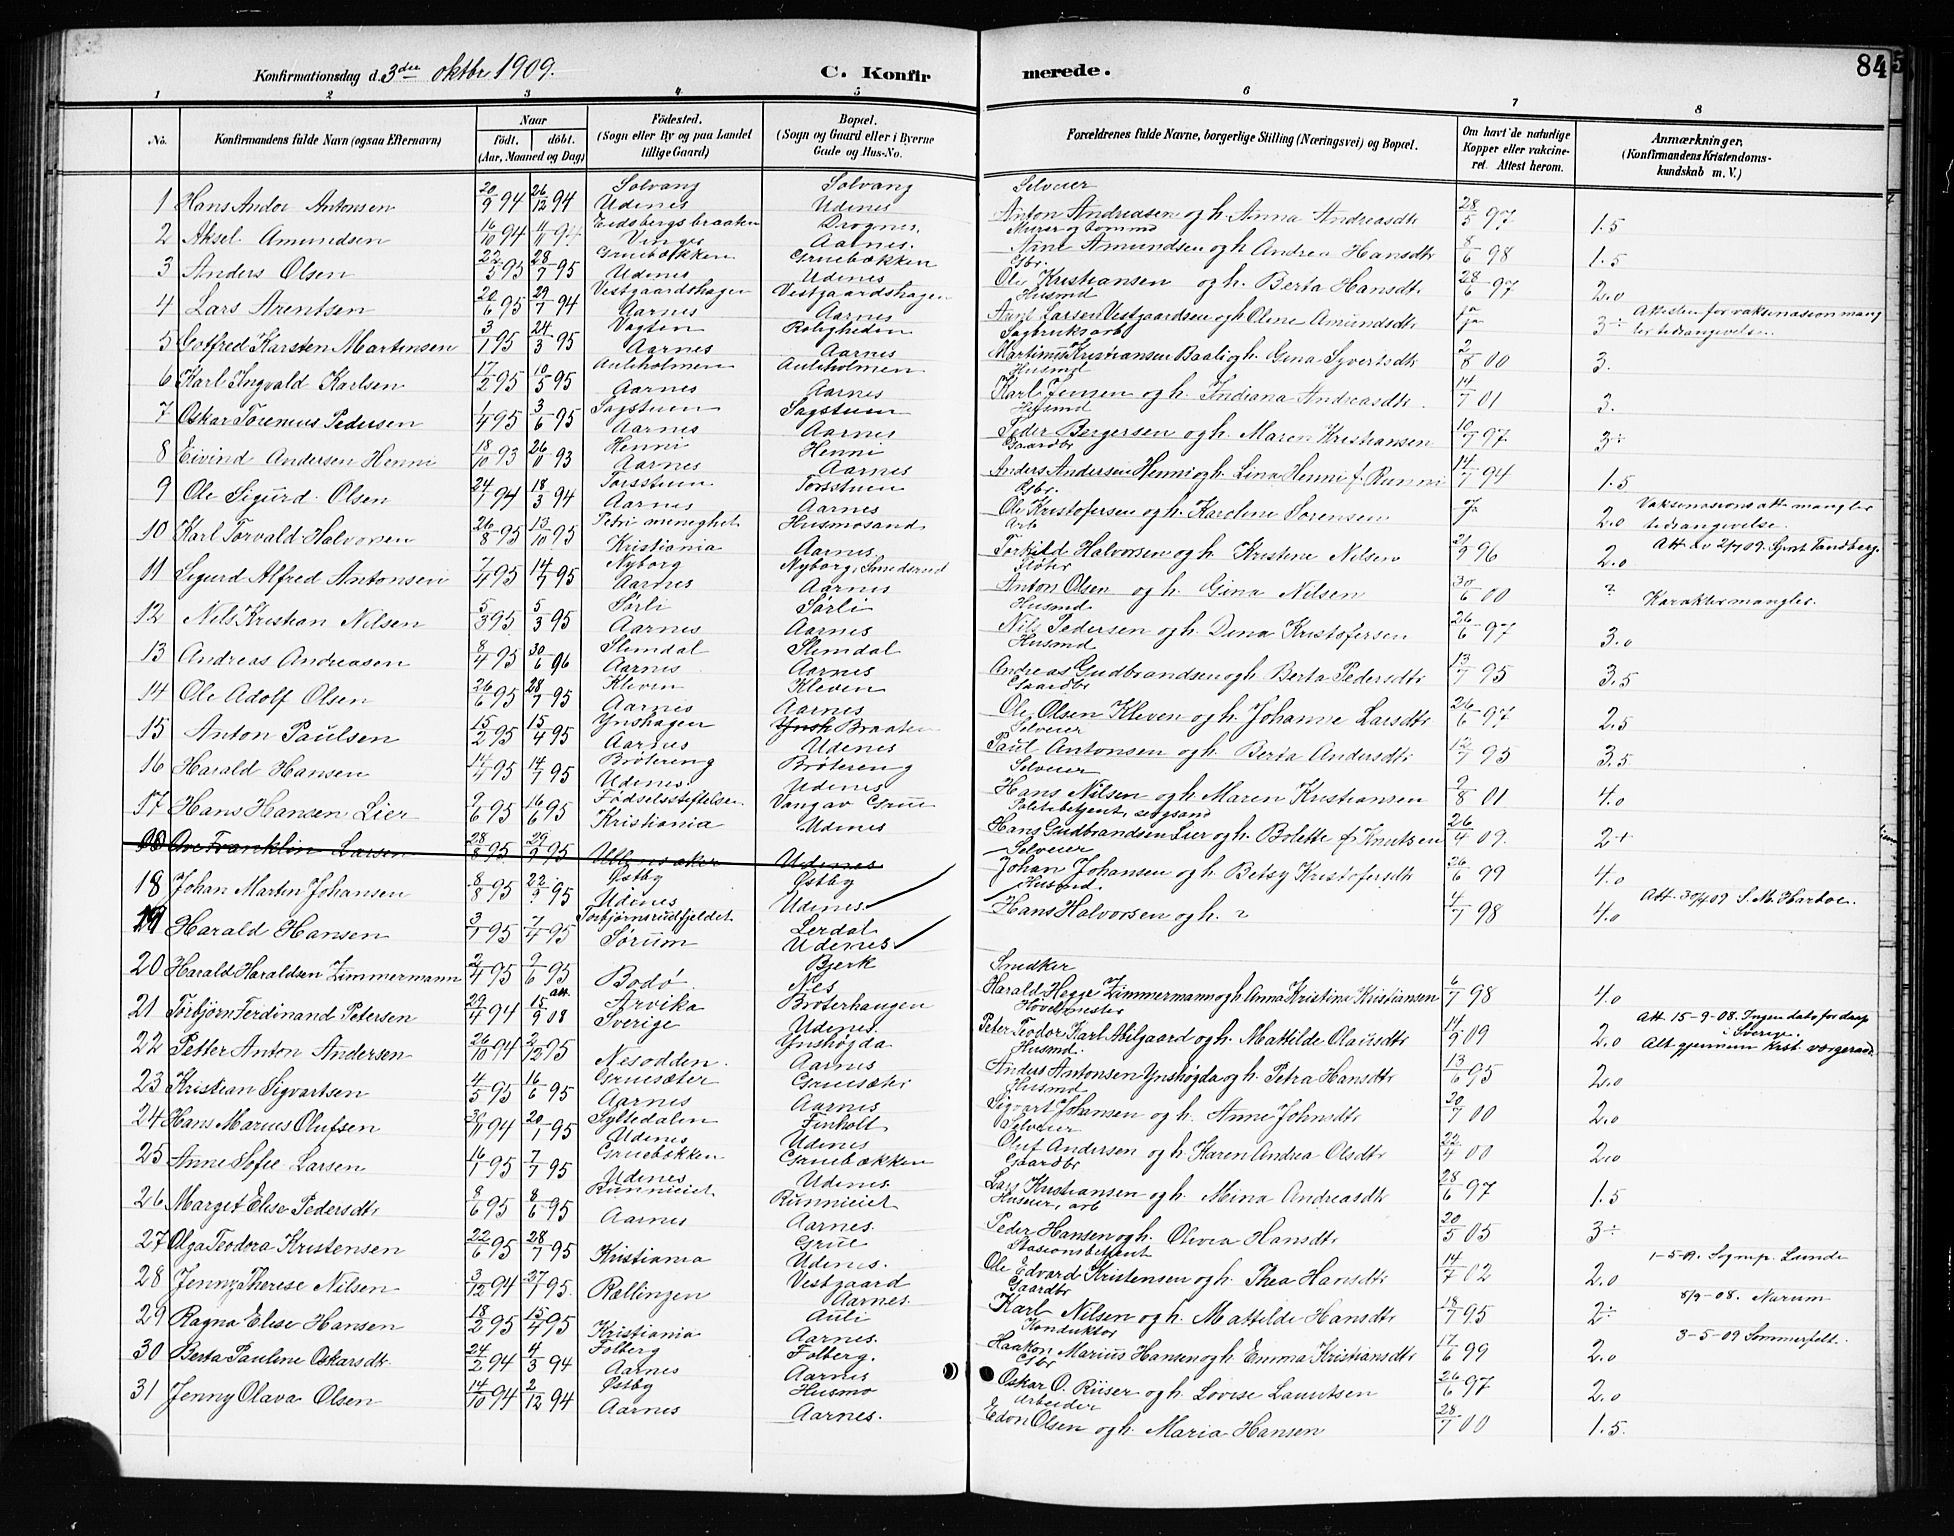 Konfirmationsdag d. 3die oktbr 1909. C. Konfirmerede. 84
1 2 3 4 5 6 7 8
No. Konfirmandens fulde Navn (ogsaa Efternavn) Naar født. døbt. (Aar, Maaned og Dag) Fødested. (Sogn eller By og paa Landet tillige Gaard) Bopæl. (Sogn og Gaard eller i Byerne Gade og Hus-No. Forældrenes fulde Navne, borgerlige Stilling (Næringsvei) og Bopæl. Om havt de naturlige Kopper eller vakcineret. Attest herom. Anmærkninger. (Konfirmandens Kristendomskundskab m. V.)
Solvang Solvang Selveier
1 Hans Andor Antonsen 20/9 94 26/12 94 Udenes Udenes Anton Andreasen og h. Anna Andreasdtr 28/5 97 1.5
Eidsbergsbraaten Drognes
2 Aksel Amundsen 16/10 94 11/11 94 Vinger Aarnes. Arne Amundsen og h. Andrea Hansdtr 8/6 98 1.5
Gruebækken Gruebækken Gbr.
3 Anders Olsen 22/5 95 28/7 95 Udenes Udenes Ole Kristiansen og h. Berta Hansdtr 28/6 97 2.0
Vestgaardshagen Vestgaardshagen Husmd
4 Lars Arentsen 20/6 95 29/7 94 Aarnes Aarnes Arent Larsen Vestgaardsen og h. Oline Amundsdtr ja 3÷ Attesten for vaksinasion mang
Roligheden Sagbruksarb ler tidsangivelse.
5 Gotfred Karsten Martinsen 3/1 95 24/3 95 Aarnes Aarnes Martinus Kristiansen Baali og h. Gina Syvertsdtr 2/8 00 3.
Auliholmen Auliholmen Husmd
6 Karl Ingvald Karlsen 17/2 95 10/5 95 Aarnes Aarnes Karl Jensen og h. Indiana Andreasdtr. 14/7 01 3.
Sagstuen Sagstuen Husmd
7 Oskar Torenius Pedersen 1/4 95 3/6 95 Aarnes Aarnes Peder Bergersen og h. Maren Kristiansen 10/7 97 3÷
Henni Henni Gaardbr
8 Eivind Andersen Henni 18/10 93 26/11 93 Aarnes Aarnes Anders Andersen Henni og h. Lina Henni f. Runni 14/7 94 1.5
Torsstuen Torsstuen Gbr.
9 Ole Sigurd Olsen 24/1 94 18/3 94 Aarnes Aarnes Ole Kristofersen og h. Karoline Sørensen ja 2.0 Vaksinasionsatt mangler
Petri menighet Husmosand Arb tidsangivelse.
10 Karl Torvald Halvorsen 26/8 95 13/10 95 Kristiania Aarnes Torkild Halvorsen og h. Kristine Nilsen 21/9 96 2.0 Att av 2/7 09. Gert Tandberg.
Nyborg Nyborg, Smedsrud Fløter
11 Sigurd Alfred Antonsen 7/4 95 14/7 95 Aarnes Aarnes Anton Olsen og h. Gina Nilsen 30/6 00 ? Karakter mangler.
Sørli Sørli Husmd.
12 Nils Kristian Nilsen 5/3 95 5/3 95 Aarnes Aarnes Nils Pedersen og h. Dina Kristofersen 26/6 97 3.0
Slemdal Slemdal Husmd
13 Andreas Andreasen 8/4 95 30/6 96 Aarnes Aarnes Andreas Gudbrandsen og h. Berta Pedersdtr 13/7 95 3.5
Kleven Kleven Gaardbr
14 Ole Adolf Olsen 26/6 95 28/7 95 Aarnes Aarnes Ole Olsen Kleven og h. Johanne Larsdtr 26/6 97 2.5
Ynshagen Ynsh Braaten Selveier
15 Anton Paulsen 15/2 95 15/4 95 Aarnes Udenes Paul Antonsen og h. Berta Andersdtr 12/7 95 3.5
Brøtereng Brøtereng Selveier
16 Harald Hansen 14/4 95 14/7 95 Udenes Udenes Hans Nilsen og h. Maren Kristiansen 2/8 01 4.0
Fødselsstiftelsen Vangav Grue Politibetjent
17 Hans Hansen Lier 9/6 95 16/6 95 Kristiania Udenes Hans Gudbrandsen Lier og h. Bolette f. Knutsen 26/4 09. 2+
Ove Franklin Larsen 28/8 95 29/9 95 Ullensaker Udenes
Østby Østby Selveier
18 Johan Martin Johansen 8/8 95 22/9 95 Udenes Udenes Johan Johansen og h. Betsy Kristofersdtr 26/6 99 4.0
Torbjørnsrudfjeldet Lerdal Husmd.
19 Harald Hansen 3/1 95 7/4 95 Sørum Udenes Hans Halvorsen og h. ? 4/7 98 4.0 Att. 30/4 09 S. M. Harboe.
Bjerk Snedker
20 Harald Haraldsen Zimmermann 2/4 95 9/6 95 Bodø Nes Harald Hegge Zimmermann og h. Anna Kristine Kristiansen 6/7 98 4.0
Arvika Brøterhaugen Hovmester
21 Torbjørn Ferdinand Petersen 29/4 94 att. 15/9 08 Sverige Udenes. Peter Teodor Karl Abilgaard og h. Mathilde Olausdtr 14/9 09 2.0 Att. 15-9-08. Ingen dato for daap i Sverige.
Ynshøgda Husmd. Att gjennem Krist.
22 Petter Anton Andersen 26/10 94 2/12 95 Nesodden. Aarnes Anders Antonsen Ynshøgda og h. Petra Hansdtr 13/6 95 2.0
Gruesæter Gruesæter Husmd
23 Kristian Sigvartsen 4/5 95 16/6 95 Aarnes Aarnes Sigvart Johansen og h. Anne Johnsdtr 20/7 00 2.0
Syltedalen Finholt Selveier
24 Hans Marius Olufsen 30/11 94 20/1 95 Udenes Udenes Oluf Andersen og h. Karen Andrea Olsdtr 22/4 00 2.0
Gruebækken Gruebækken Gaardbr
25 Anne Sofie Larsen 16/1 95 7/7 95 Udenes Udenes Lars Kristiansen og h. Mina Andreasdtr 28/6 97 1.5
Runnieiet Runnieiet Husm, arb
26 Marget Elise Pedersdtr 8/6 95 8/6 95 Aarnes Aarnes. Peder Hansen og h. Olivia Hansdtr 20/5 05 3÷
Grue Stasionsbetjent
27 Olga Teodora Kristensen 22/6 95 28/7 95 Kristiania Udenes. Ole Edvard Kristensen og h. Thea Hansdtr 14/7 02 2.0 1-5-09. Sognep. Lunde
Vestgaard Gaardbr
28 Jenny Therese Nilsen 3/12 94 27/ 95. Rællingen Aarnes. Karl Nilsen og h. Mathilde Hansdtr 18/7 95 2÷ 8/9-08. Narum
Auli Konduktør
29 Ragna Elise Hansen 18/2 95 15/4 95 Kristiania Aarnes. Haakon Marius Hansen og h. Emma Kristiansdtr 17/6 99 2.0 3-5-09 Sommerfelt.
Folberg Folberg. Gbr
30 Berta Pauline Oskarsdtr. 24/2 94 4/3 94 Aarnes Aarnes Oskar O. Riiser og h. Lovise Lauritsen 26/6 97 2.0
Østby Husmo Arbeider
31 Jenny Olava Olsen 14/10 94 2/12 94 Aarnes Aarnes. Edon Olsen og h. Maria Hansen 28/7 00 1.5.